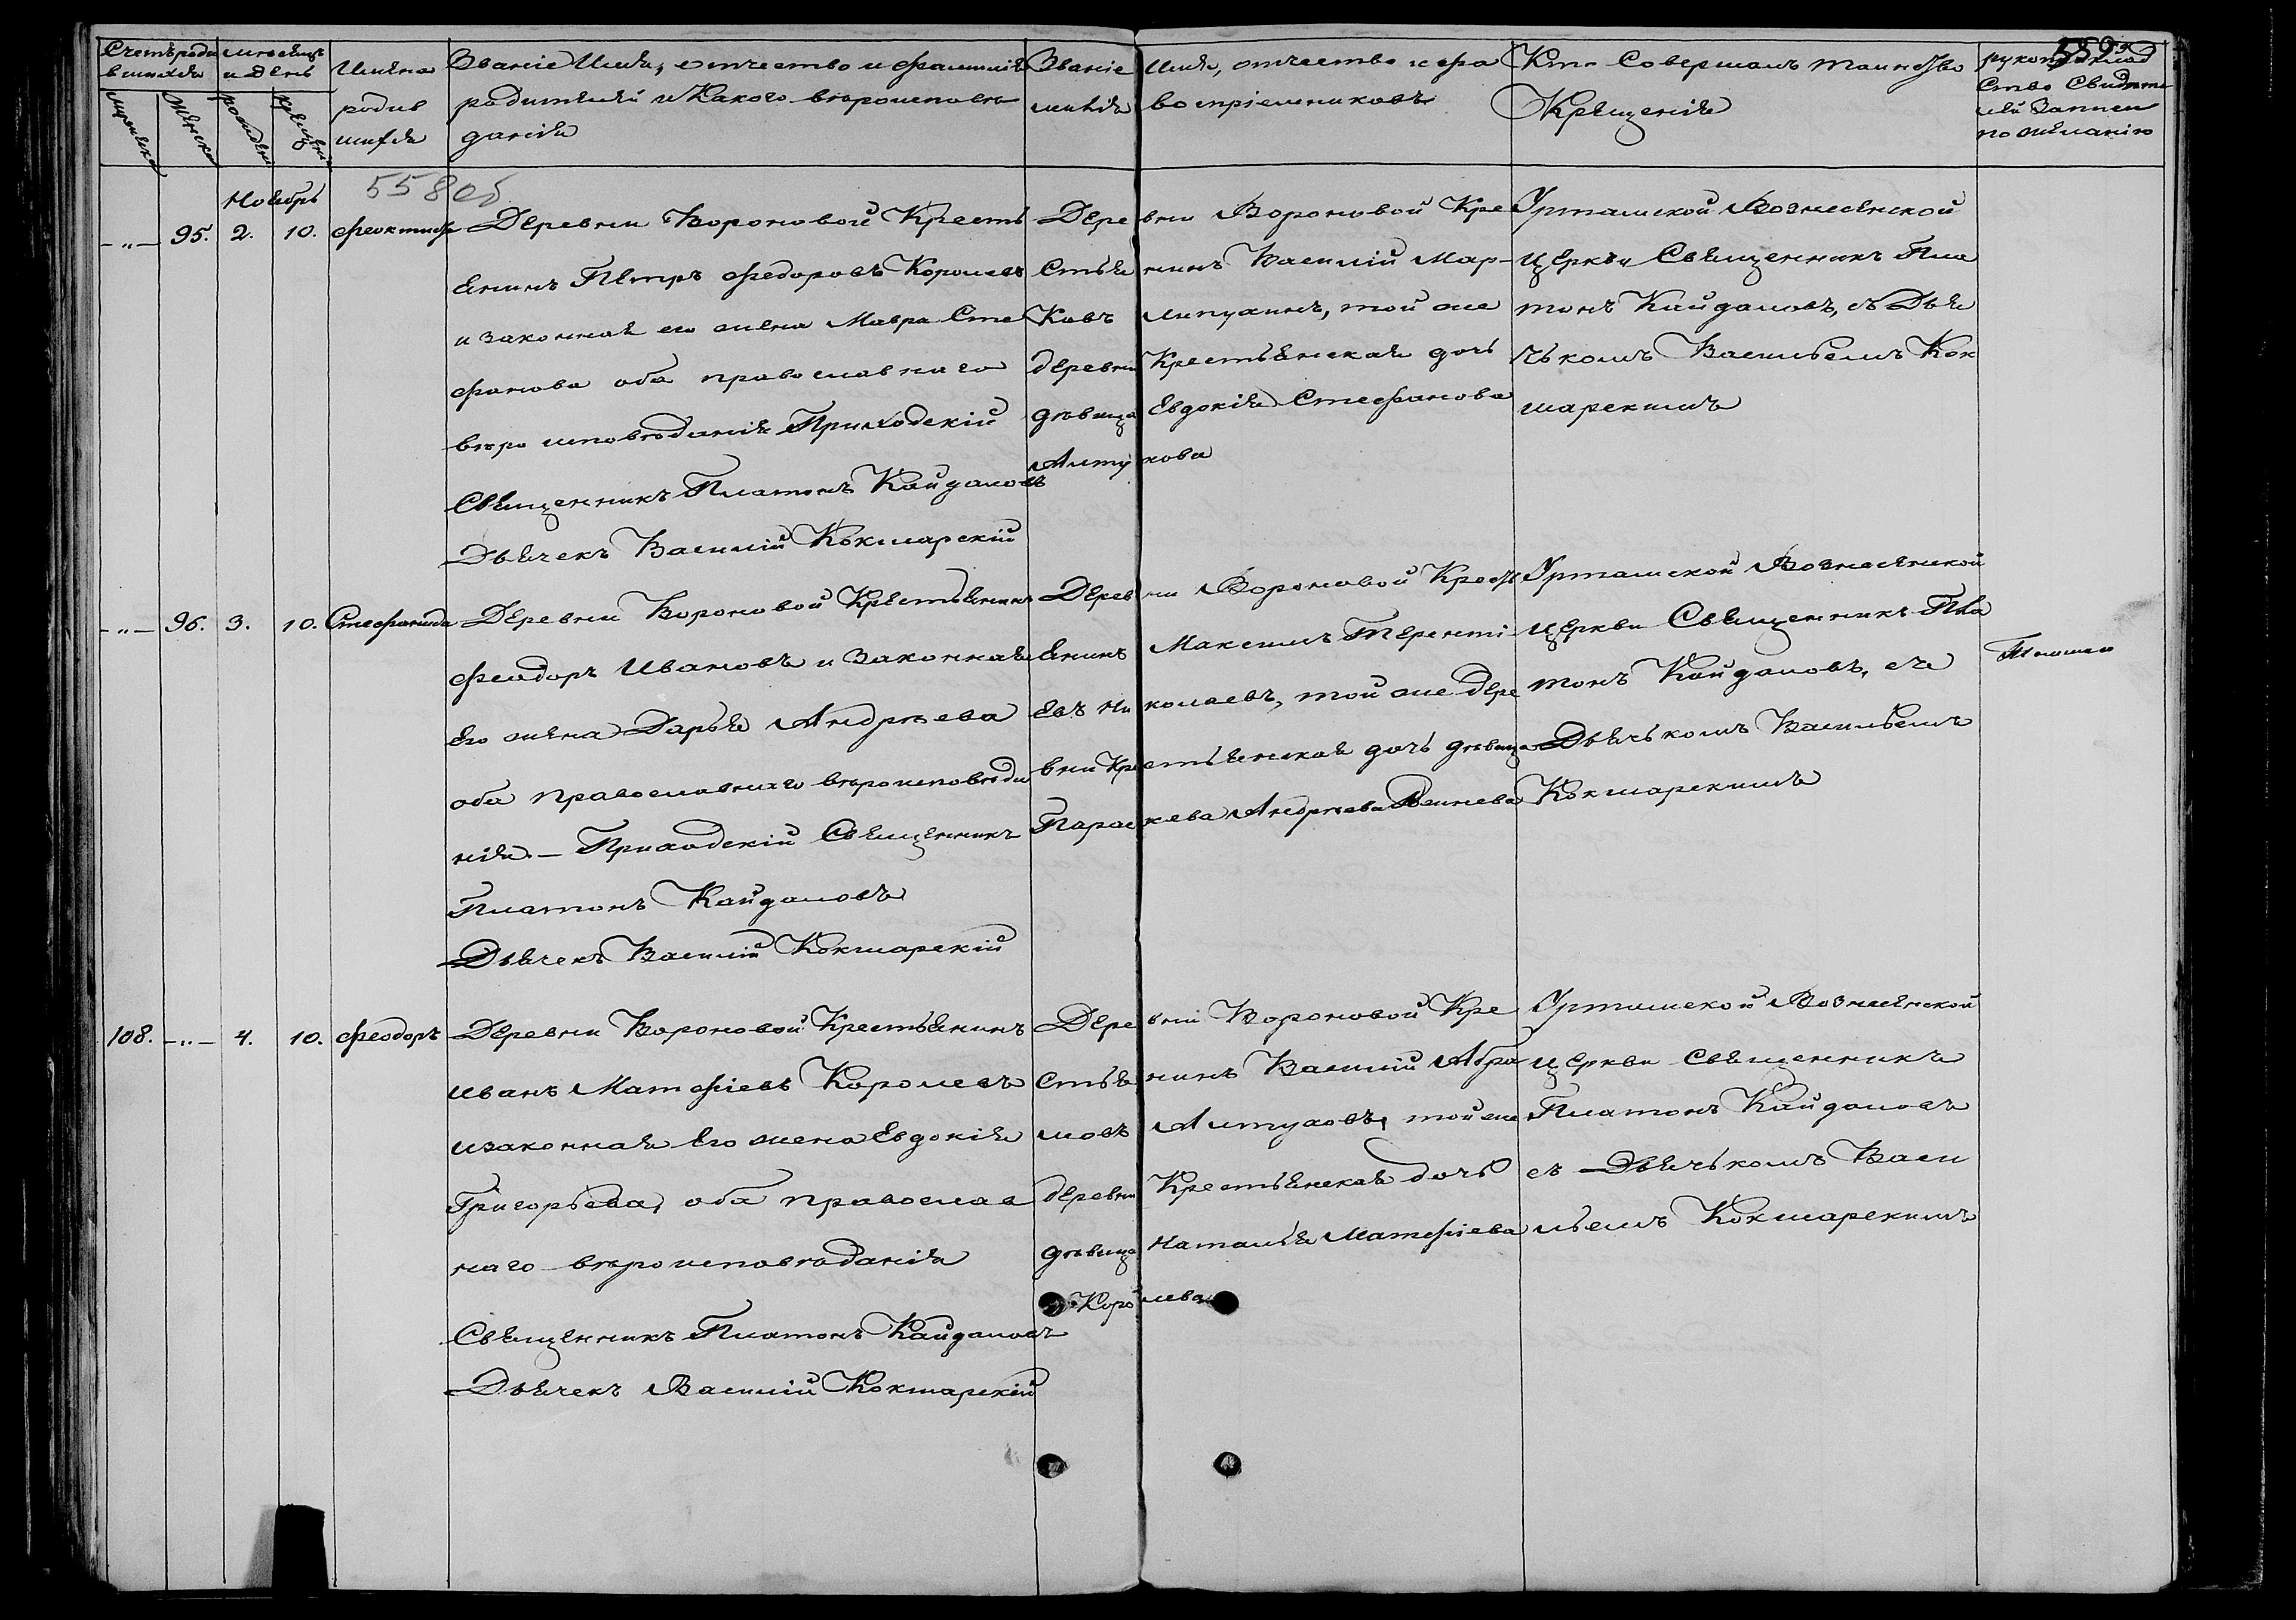 Счетъ роди
вшихся
мѣсяцъ
и день
мужеска
женска
рожденія
крещенія
Имена
родив
шихся
Званіе Имя, отчество и фамилія
родителей и Какого вѣроисповѣ
данія
Званіе Имя, отчество и фа
милія воспріемниковъ
Кто Совершалъ таинство
Крещенія
рукоприклад
Ство Свидѣте
лей Записи
по желанію
Ноябрь
558об
-"- 95. 2. 10. Феоктиста
Деревни Вороновой Кресть
янинъ Петръ Федоровъ Королевъ
и законная его жена Мавра Сте
фанова оба православнаго
вѣро исповѣданія Приходскій
Священникъ Платонъ Кайдаловъ
Дьячекъ Василій Кокшарскій
Деревни Вороновой Кре
Стьянинъ Василій Мар-
Ковъ той же
деревни Крестьянская дочь
дѣвица Евдокія Стефанова
Алтухова
Урташской Вознесенской
Церкви Священникъ Пла
тонъ Кайдаловъ, съ Дья
чькомъ Васильемъ Кок
шарскимъ
-"- 96. 3. 10. Стефанида
Деревни Вороновой Крестьянинъ
Феодоръ Ивановъ и Законная
Его жена Дарья Андрѣева
оба православнаго вѣроисповѣда
нія. — Приходскій Священникъ
Платонъ Кайдаловъ
Дьячекъ Василій Кокшарскій
Деревни Вороновой Кресть
янинъ Максимъ Теренті
евъ Николаевъ, той же дере
вни Крестьянская дочь дѣвица
Параскева Андрѣева
Урташской Вознесенской
Церкви Священникъ Пла
тонъ Кайдаловъ, съ
Дьячькомъ Васильемъ
Кокшарскимъ
108. -"- 4. 10. Феодоръ
Деревни Вороновой Крестьянинъ
Иванъ Матфіевъ Королевъ
и законная Его жена Евдокія
Григорьева, оба православ
наго вѣроисповѣданія
Священникъ Платонъ Кайдаловъ
Дьячекъ Василій Кокшарскій
Деревни Вороновой Кре
Стьянинъ Василій Абра
мовъ Алтуховъ, той же
деревни Крестьянская дочь
дѣвица Наталья Матфіева
Королева
Урташской Вознесенской
Церкви Священникъ
Платонъ Кайдаловъ
съ Дьячькомъ Васи
льемъ Кокшарскимъ